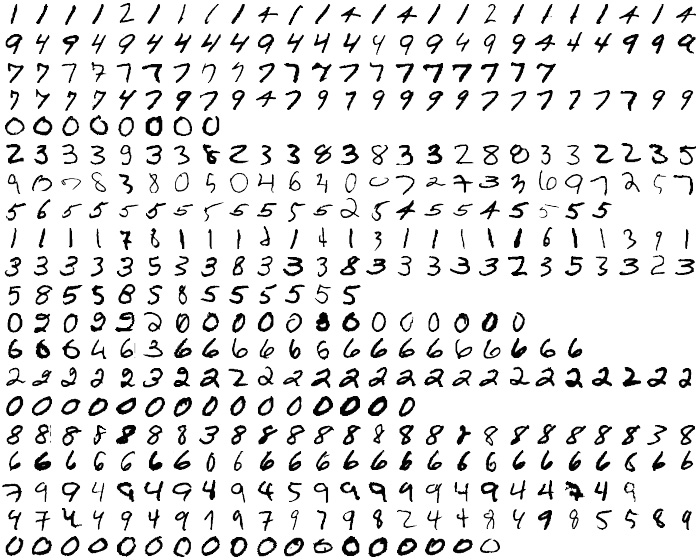 1 1 1 1 2 1 1 6 1 4 1 1 4 1 4 1 1 2 1 1 1 1 4 1 4
9 4 9 9 4 9 4 4 4 4 9 4 4 4 9 9 4 9 9 4 4 4 9 9 9
7 7 7 7 7 7 7 7 7 7 7 7 7 7 7 7 7 7 7 7
7 7 7 7 4 7 9 7 9 4 7 9 7 9 9 9 9 7 7 7 7 7 7 9 9
0 0 0 0 0 0 0 0
2 3 3 3 9 3 3 8 2 3 3 8 3 8 3 3 2 8 8 3 3 2 2 3 5
8 3 8 0 5 0 4 6 4 0 0 7 2 7 3 3 6 9 7 2 5 7
5 6 5 5 5 5 5 5 5 5 5 5 2 5 4 5 5 4 5 5 5 5
1 1 1 1 7 8 1 1 1 2 1 4 1 3 1 1 1 1 1 6 1 1 3 9 1
3 3 3 3 3 5 3 3 8 3 3 3 8 3 3 3 3 3 2 3 5 3 3 2 3
5 8 5 5 8 5 8 5 5 5 5 5 5
0 2 0 2 2 2 0 0 0 0 0 8 0 0 0 0 0 0 0
6 6 6 4 6 3 6 6 6 6 6 6 6 6 6 6 6 6 6 6 6
2 2 2 2 2 3 2 2 2 2 2 2 2 2 2 2 2 2 2 2 2 2 2 2 2
0 0 0 0 0 0 0 0 0 0 0 0 0 0 0
8 8 8 8 8 8 8 3 8 8 8 8 8 8 8 8 8 8 8 8 8 8 8 3 8
6 6 6 6 6 6 6 0 6 6 6 6 6 6 6 6 6 6 6 6 6 6 6 6 6
7 9 9 4 9 4 9 4 9 4 5 9 9 9 9 9 4 9 4 4 7 4 9
4 7 4 4 9 4 9 1 9 7 9 7 9 8 2 4 4 8 4 9 8 5 5 8 9
0 0 0 0 0 0 0 0 0 0 0 0 0 0 0 0 0 0